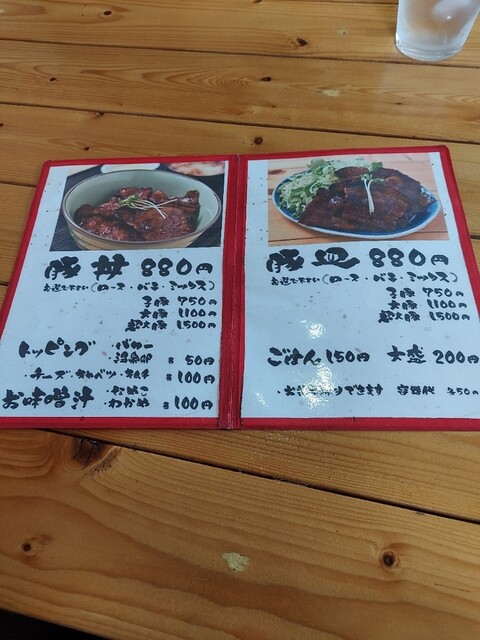 豚丼 880円
お選び下さい(ロース・バラ・ミックス)
子豚 750円
大豚 1100円
超大豚 1500円
トッピング ・バター
・温泉卵 各50円
・チーズ・キャベツ・キムチ 各100円
お味噌汁 ・なめこ
・わかめ 各100円
豚皿 880円
お選び下さい(ロース・バラ・ミックス)
子豚 750円
大豚 1100円
超大豚 1500円
ごはん。150円 大盛 200円
・お持ち帰りできます 容器代 50円